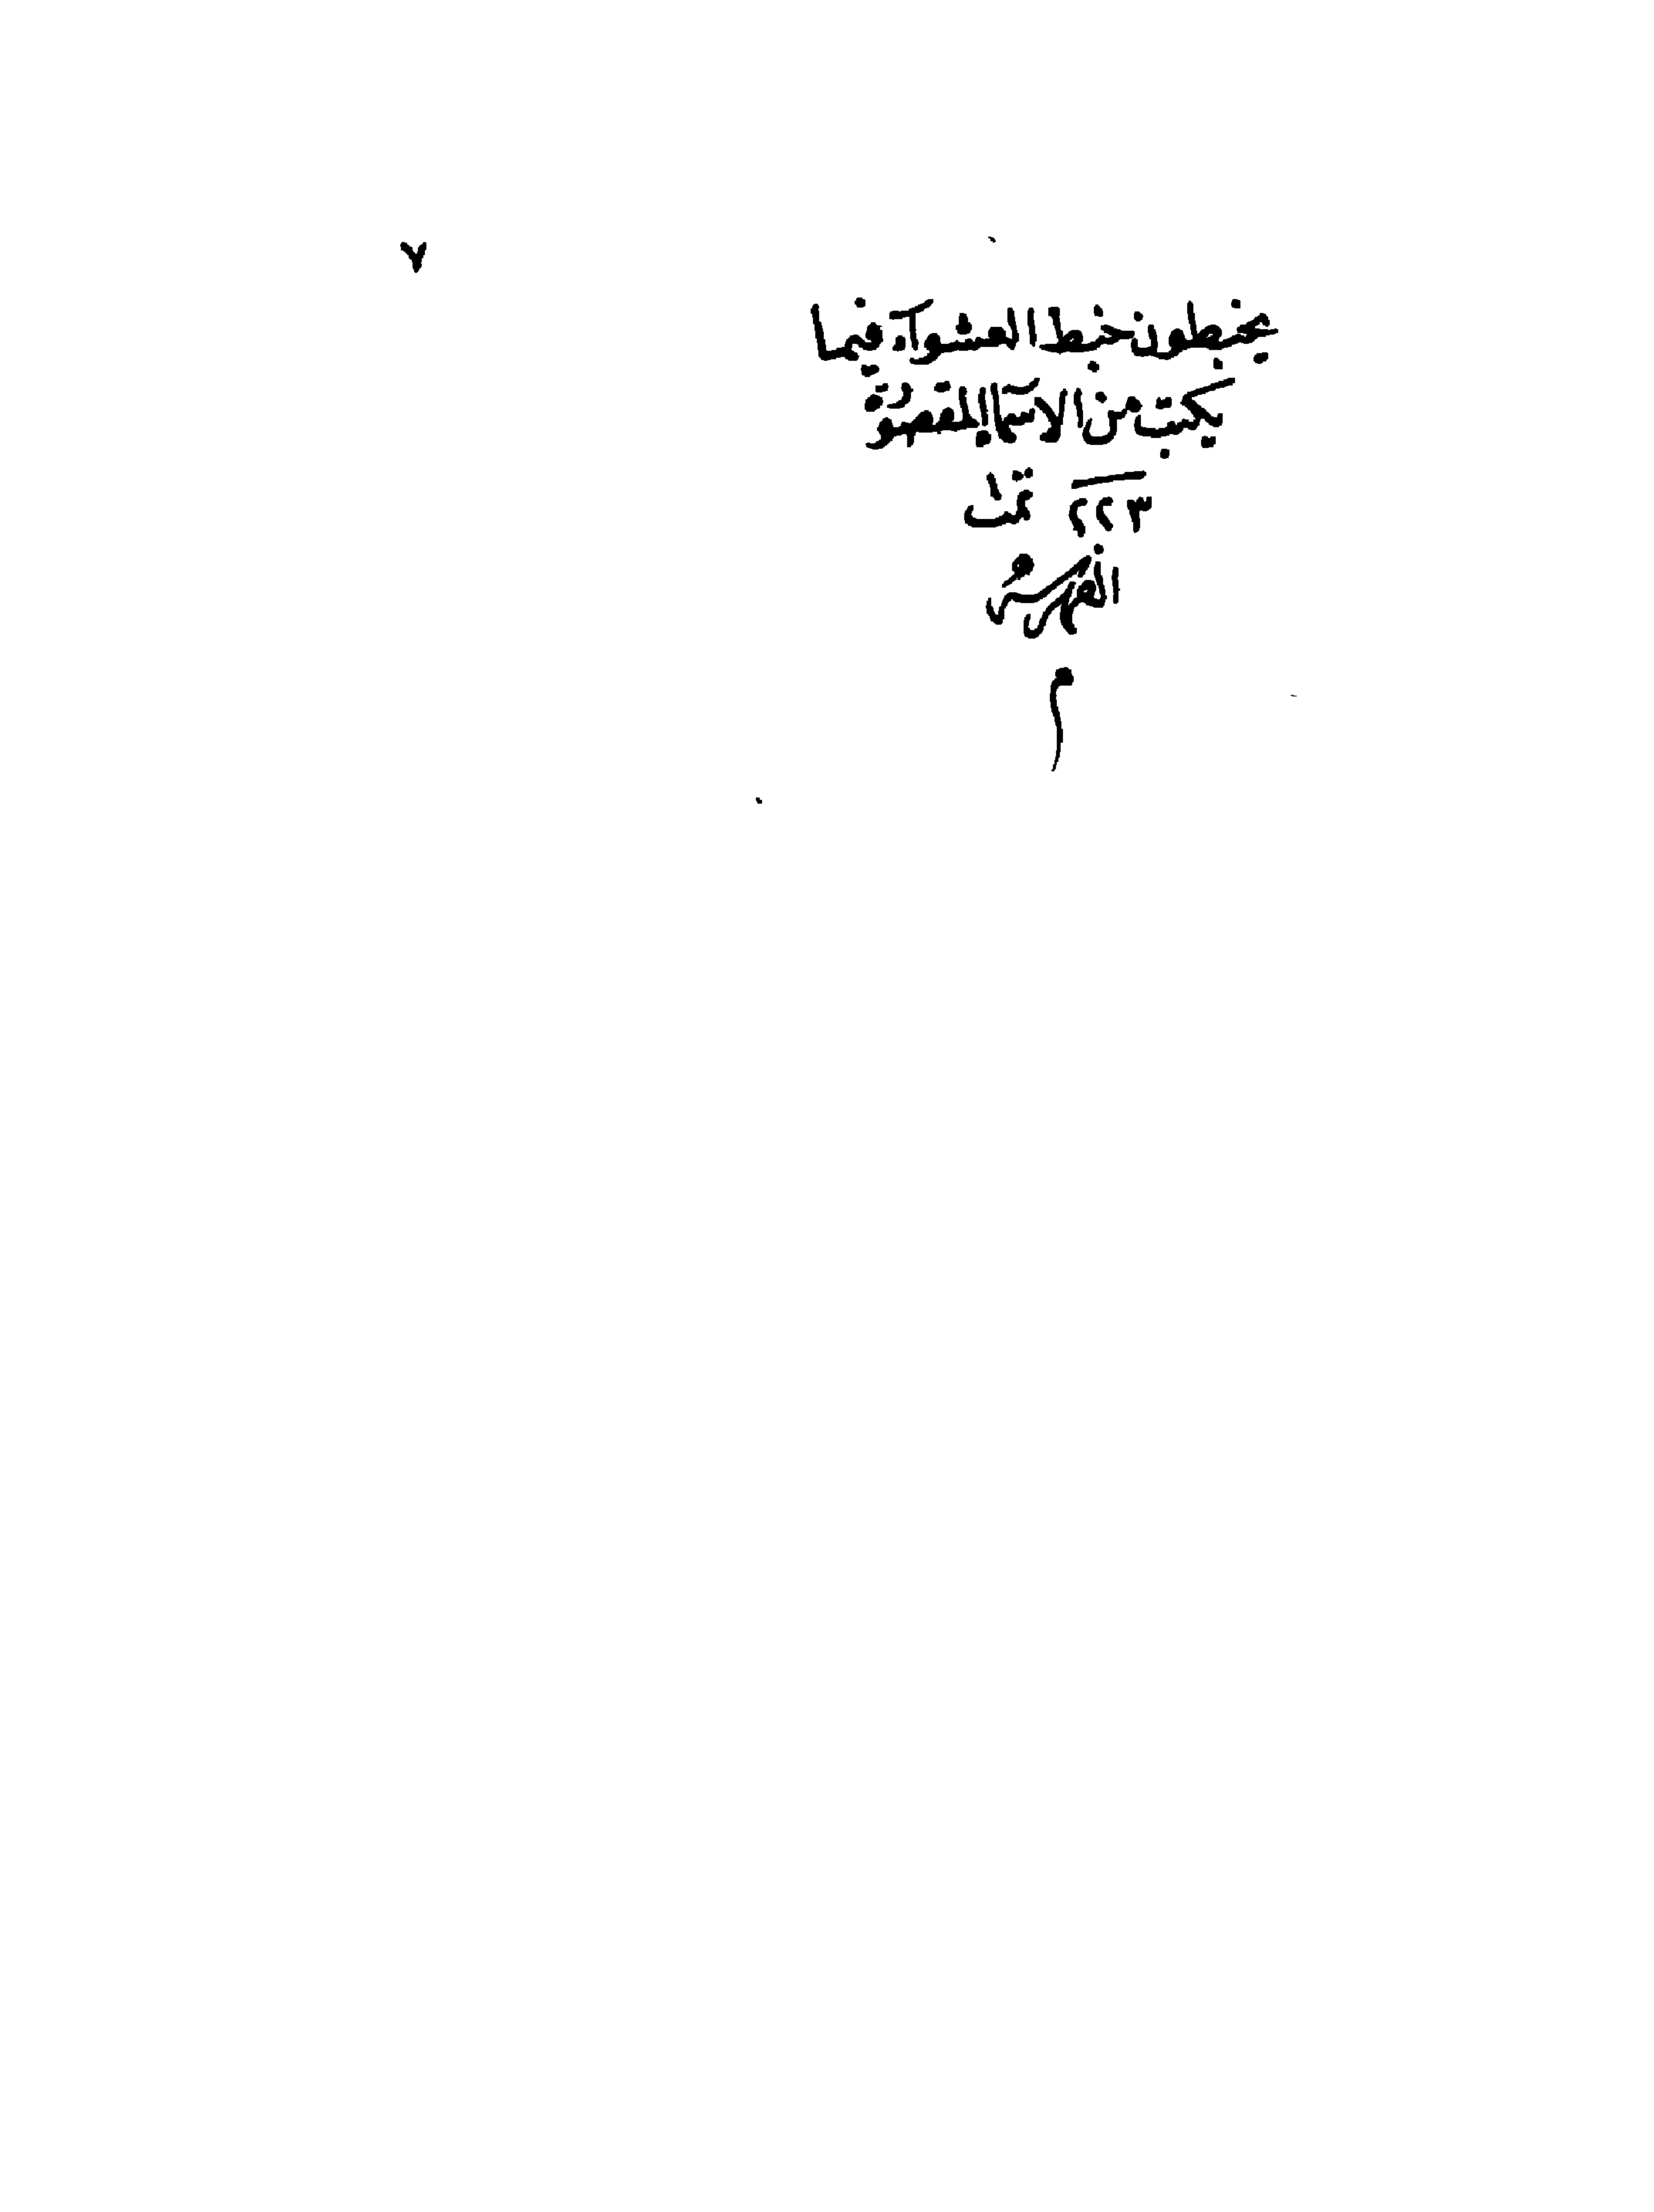 ٧
يخبطون خبط العشوآء فيما
يكتب من الاسمآ المقصورة
٢٢٣ تمت
الفهرس
م